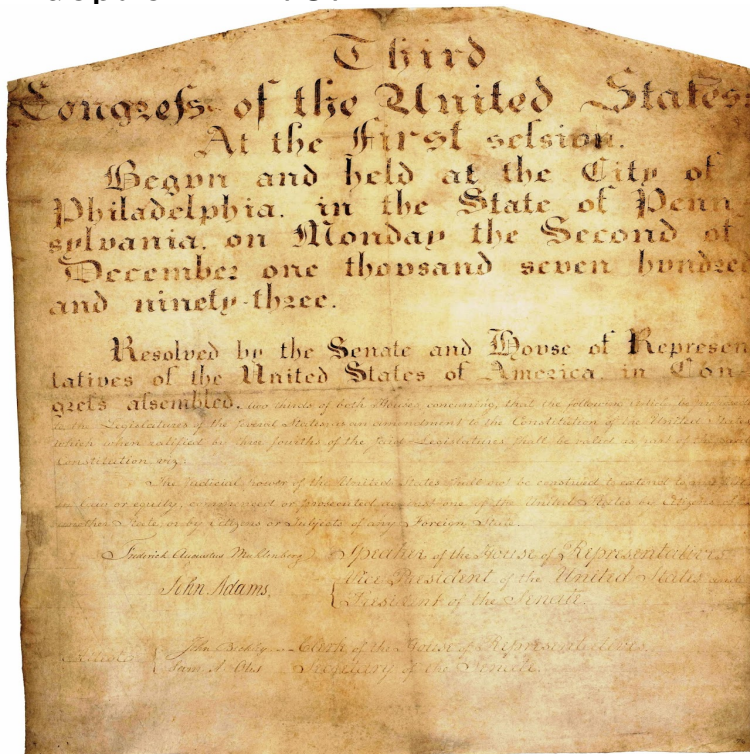 Third
Congreſs of the United States
At the First seſsion.
Begun and held at the City of
Philadelphia, in the State of Penn
sylvania, on Monday the Second of
December one thousand seven hundred
and ninety-three.
Resolved by the Senate and House of Represen
tatives of the United States of America, in Con-
greſs aſsembled, two thirds of both Houses concurring, that the following
to the Legislatures of the several States, as an amendment to the Constitution of the United States
which when ratified by three fourths of the said Legislatures shall be valid as part of the said
Constitution, viz:
The judicial power of the United States shall not be construed to extend to any suit
in law or equity, commenced or prosecuted against one of the United States by Citizens of
another State, or by Citizens or Subjects of any Foreign State.
Frederick Augustus Muhlenberg Speaker of the House of Representatives
John Adams, Vice President of the United States and
President of the Senate.
John Beckley Clerk of the House of Representatives
Sam. A. Otis Secretary of the Senate.